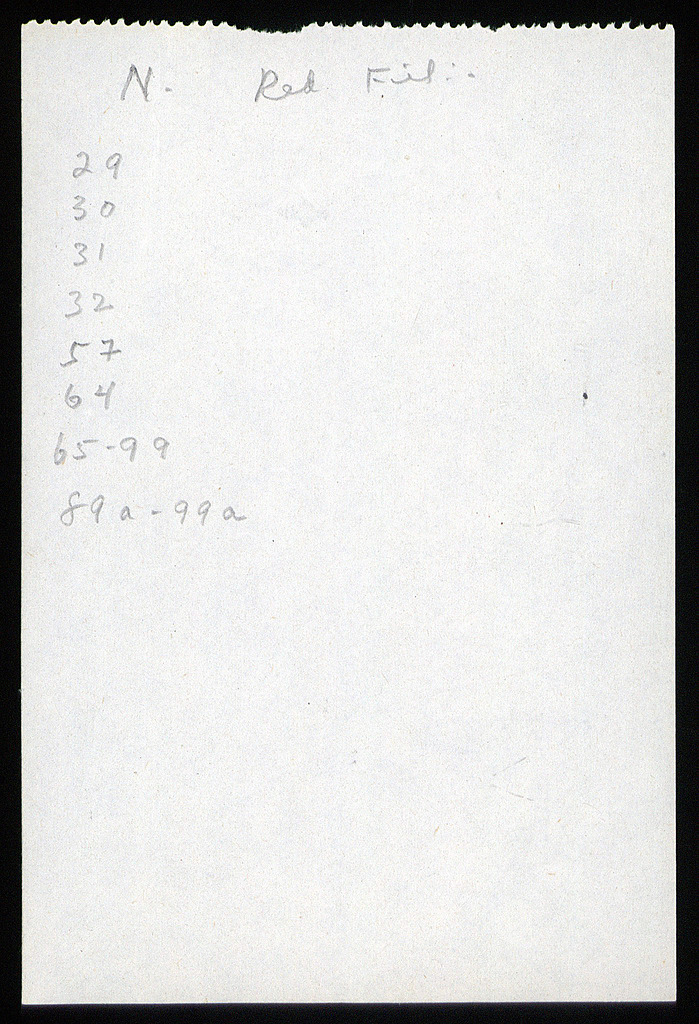 N. Red
29
30
31
32
57
64
65-99
89a-99a